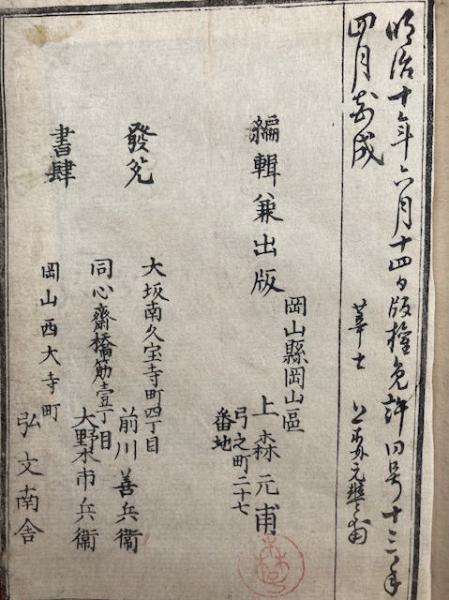 明治十年六月十四日版權免許同号十三年
四月刻成
編輯兼出版
岡山縣岡山區
弓之町二十七
番地
上森元甫
發兌
大坂南久宝寺町四丁目
前川善兵衞
同心齋橋筋壹丁目
大野木市兵衞
書肆
岡山西大寺町
弘文南舎